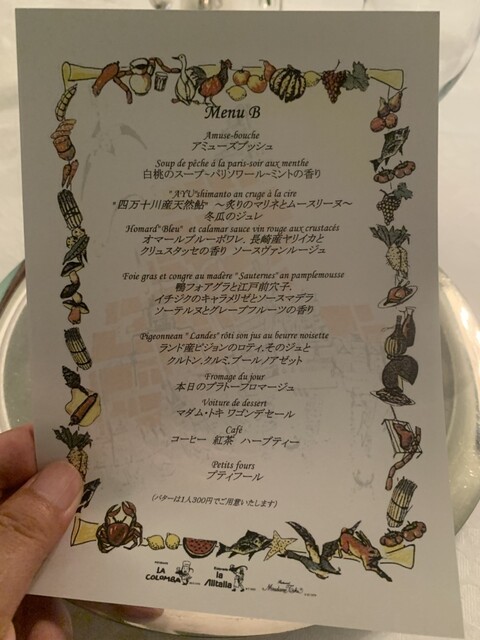 Menu B
Amuse-bouche
アミューズブッシュ
Soup de pêche á la paris-soir aux menthe
白桃のスープ~パリソワール~ミントの香り
"AYU"shimanto an cruge à la cire
"四万十川産天然鮎" ～炙りのマリネとムースリーヌ～
冬瓜のジュレ
Homard"Bleu" et calamar sauce vin rouge aux crustacés
オマールブルーポワレ, 長崎産ヤリイカと
クリュスタッセの香り ソースヴァンルージュ
Foie gras et congre au madère "Sauternes" an pamplemousse
鴨フォアグラと江戸前穴子,
イチジクのキャラメリゼとソースマデラ
ソーテルヌとグレープフルーツの香り
Pigeonnean "Landes" rôti son jus au beurre noisette
ランド産ピジョンのロティ,そのジュと
クルトン,クルミ,ブールノアゼット
Fromage du jour
本日のプラトーフロマージュ
Voiture de dessert
マダム・トキ ワゴンデセール
Café
コーヒー 紅茶 ハーブティー
Petits fours
プティフール
(バターは1人300円でご用意いたします)
LA COLOMBA
la Alitalia
Madame Toki